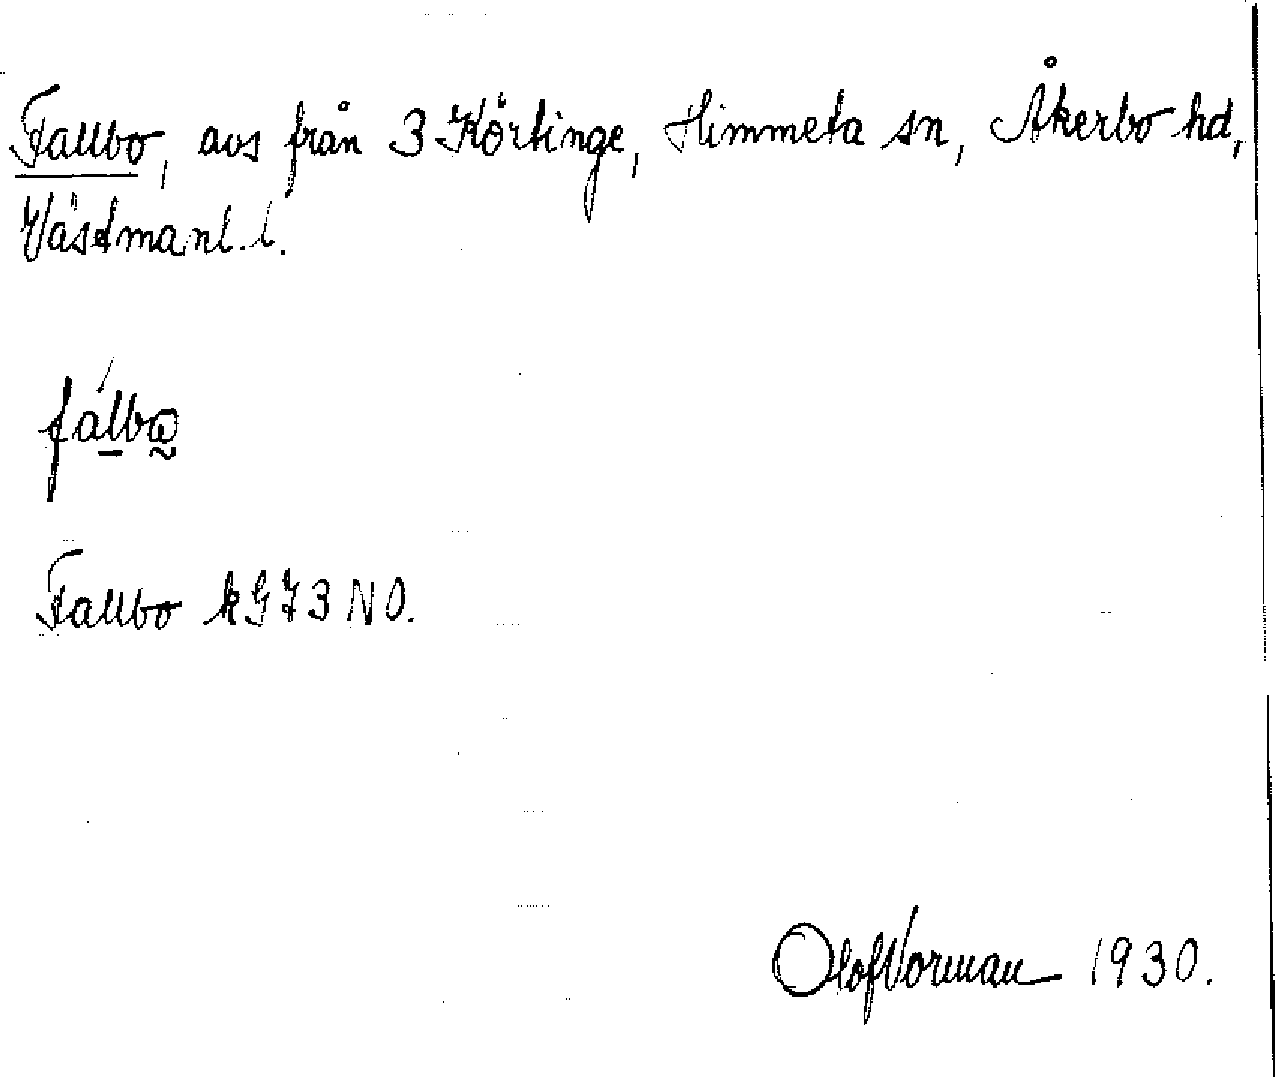 Fallbo, avs från 3 Körtinge, Himmeta sn, Åkerbo hd,
Västmanl. l.
fálbω
Fallbo kG73 NO.
Olof Norman 1930.